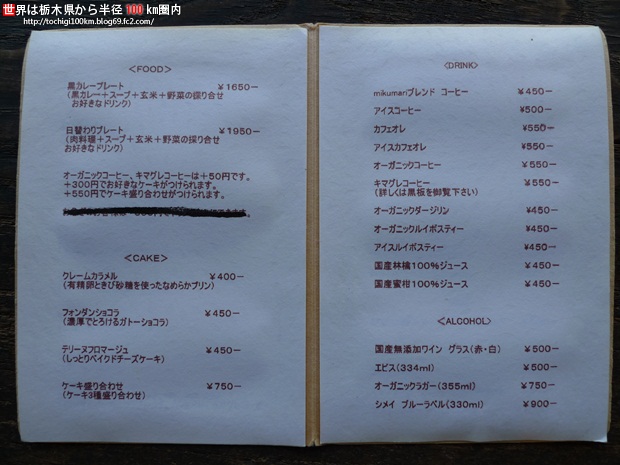 世界は栃木県から半径 100 km圏内
http://tochigi100km.blog69.fc2.com/
<FOOD>
黒カレープレート ￥1650-
(黒カレー+スープ+玄米+野菜の採り合せ
お好きなドリンク)
日替わりプレート ￥1950-
(肉料理+スープ+玄米+野菜の採り合せ
お好きなドリンク)
オーガニックコーヒー、キマグレコーヒーは+50円です。
+300円でお好きなケーキがつけられます。
+550円でケーキ盛り合わせがつけられます。
<CAKE>
クレームカラメル ￥400-
(有精卵ときび砂糖を使ったなめらかプリン)
フォンダンショコラ ￥450-
(濃厚でとろけるガトーショコラ)
テリーヌフロマージュ ￥450-
(しっとりベイクドチーズケーキ)
ケーキ盛り合わせ ￥750-
(ケーキ3種盛り合わせ)
<DRINK>
mikumariブレンド コーヒー ￥450-
アイスコーヒー ￥500-
カフェオレ ￥550-
アイスカフェオレ ￥550-
オーガニックコーヒー ￥550-
キマグレコーヒー ￥550-
(詳しくは黒板を御覧下さい)
オーガニックダージリン ￥450-
オーガニックルイボスティー ￥450-
アイスルイボスティー ￥450-
国産林檎100%ジュース ￥450-
国産蜜柑100%ジュース ￥450-
<ALCOHOL>
国産無添加ワイン グラス(赤・白) ￥500-
エビス(334ml) ￥500-
オーガニックラガー(355ml) ￥750-
シメイ ブルーラベル(330ml) ￥900-